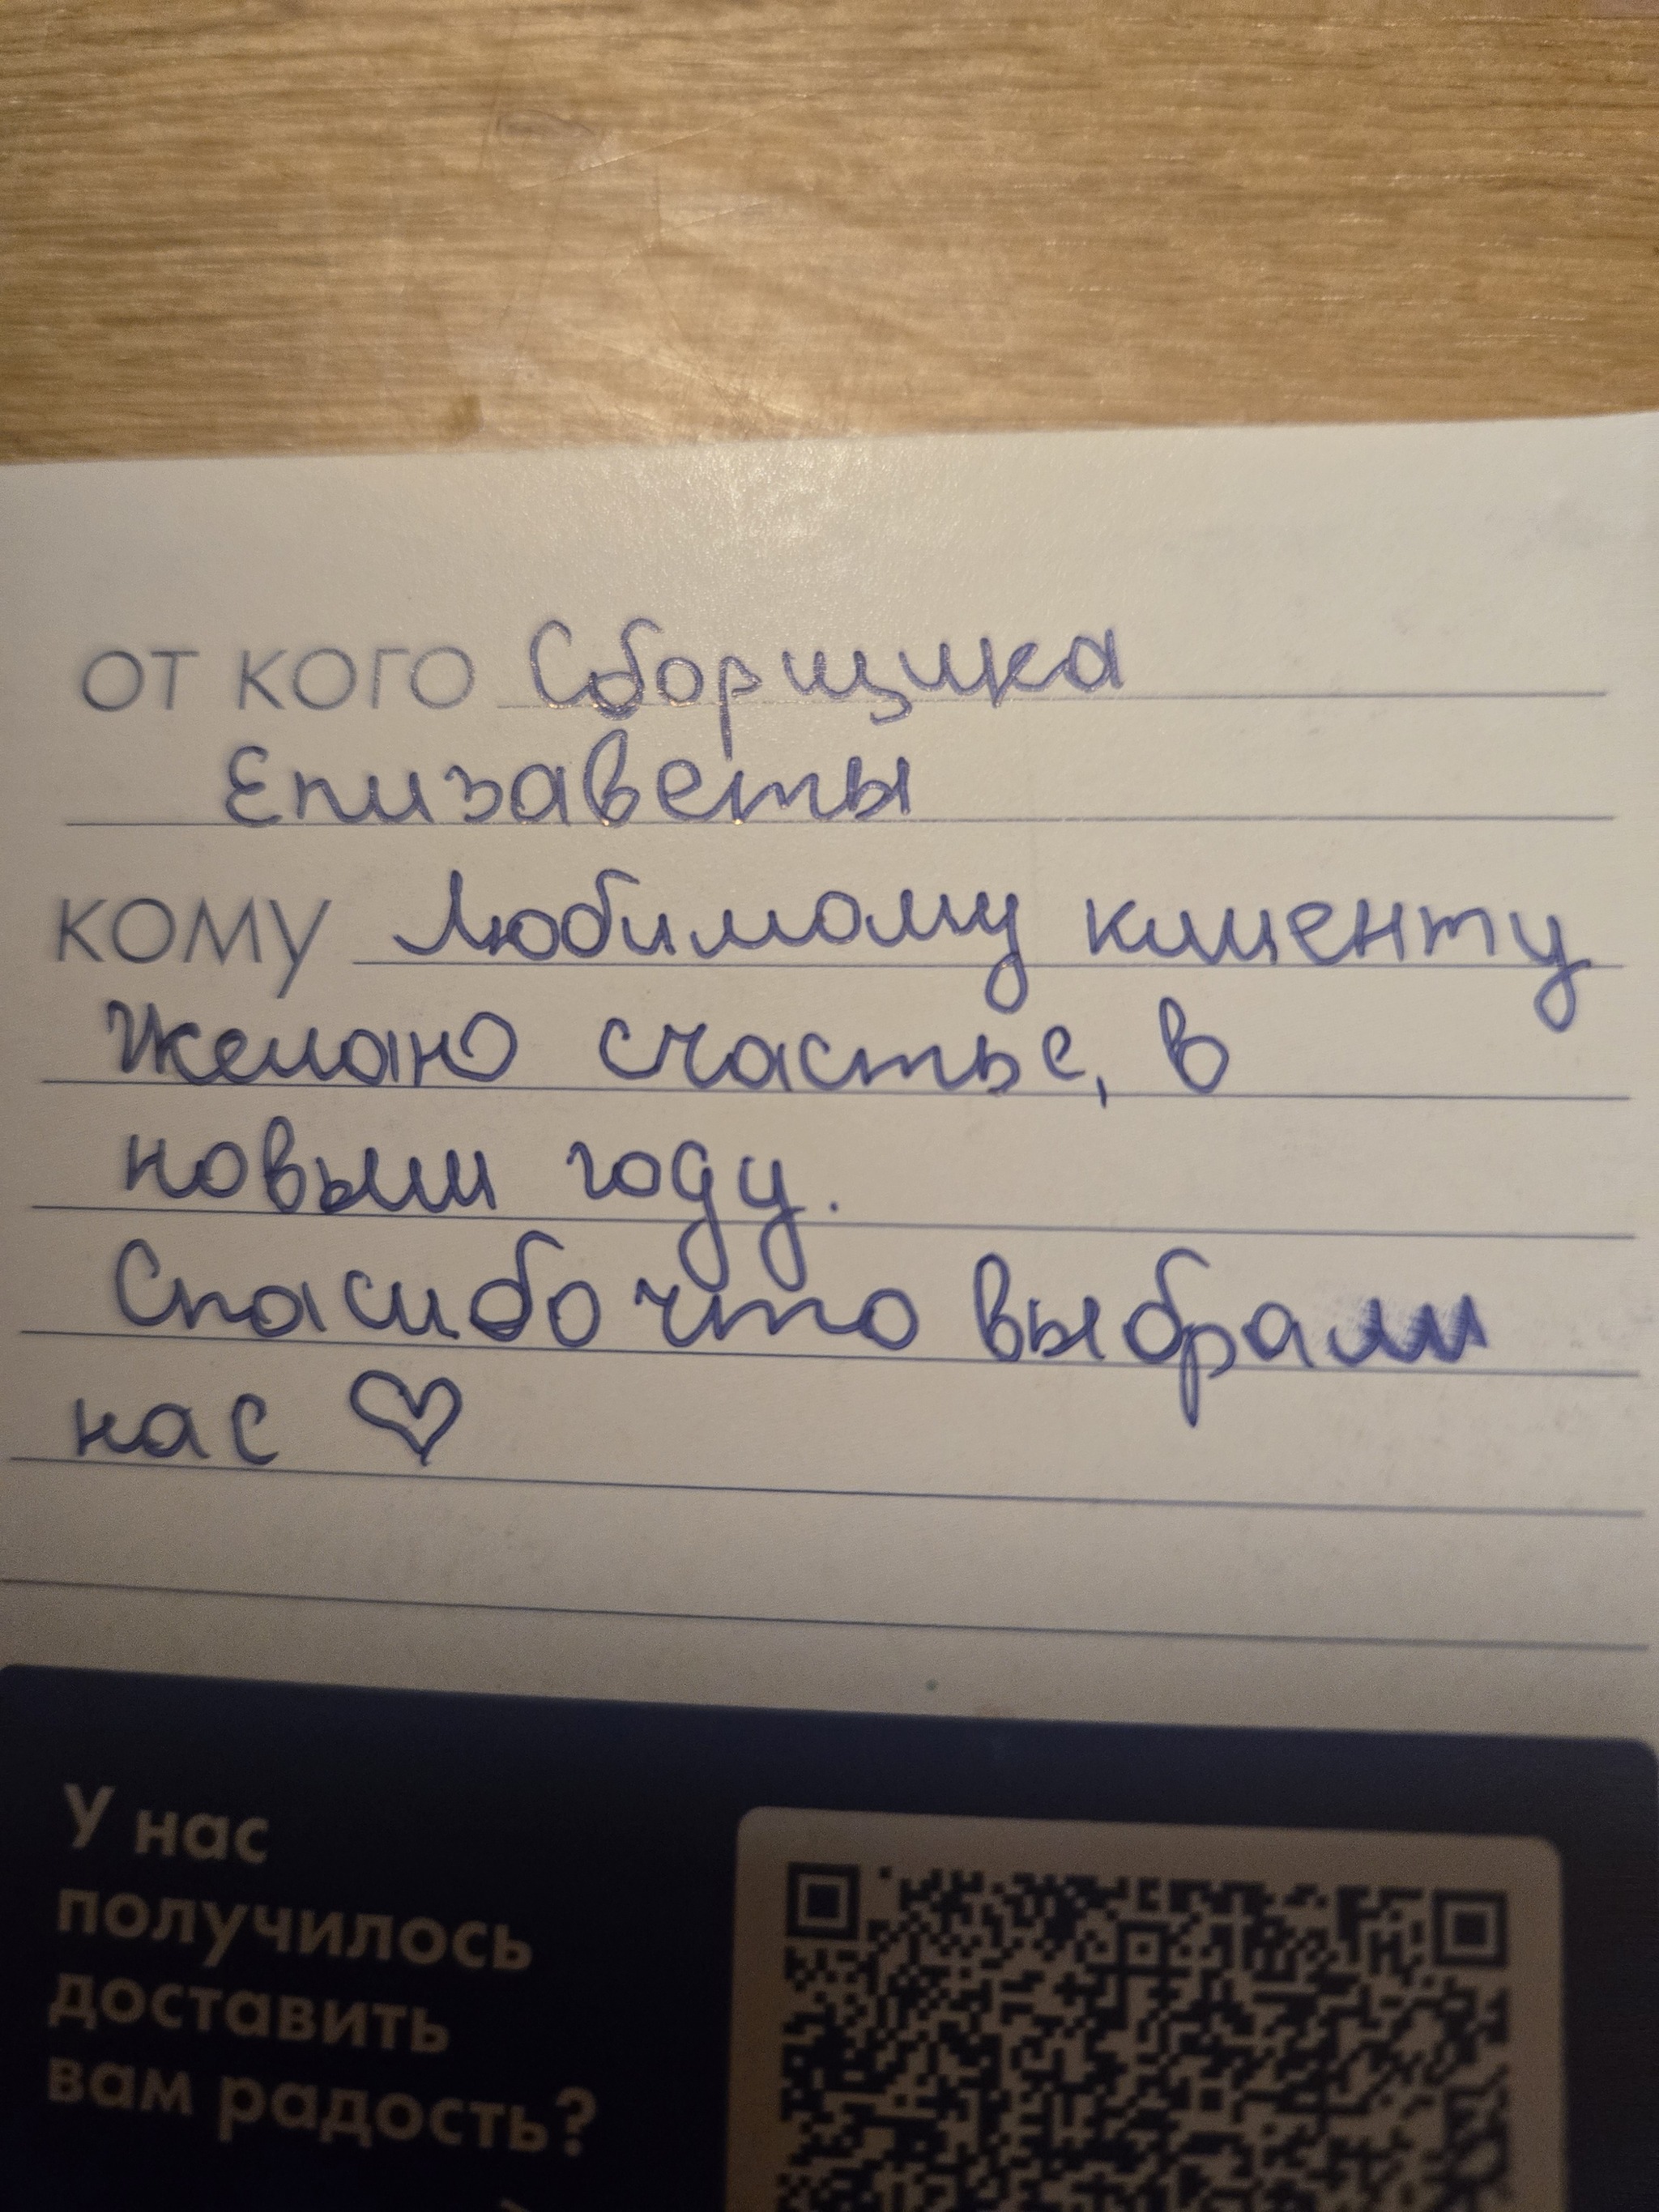 ОТ КОГО Сборщика
Елизаветы
КОМУ Любимому клиенту
Желаю счастье, в
новым году.
Спасибо что выбрали
нас ♡
У нас
получилось
доставить
вам радость?